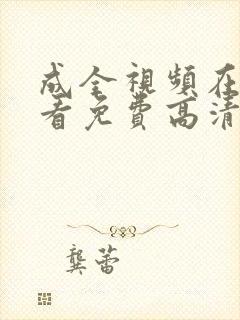 成全視頻在
看免費高清
龔蕾